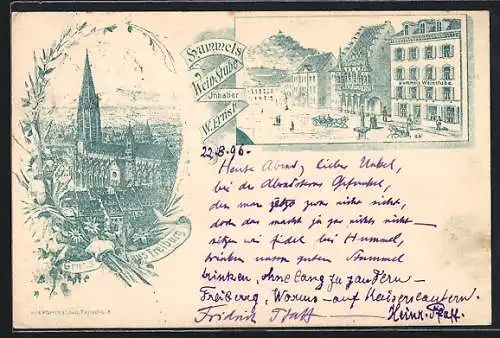 Hummels
WeinStube
Inhaber
W. Ernst
Hummels Weinstube
Gruss aus Freiburg
22.8.96.
Heute Abend, lieber Onkel,
bei der
den man jetzt zwar nicht sieht,
doch das macht ja gar nichts nicht —
sitzen wir fidel bei Hummel,
trinken unsern guten
trinken, ohne lang zu zaudern —
Freiburg, Worms — auf Kaiserslautern.
Fridrich Pfaff Heinr. Pfaff.